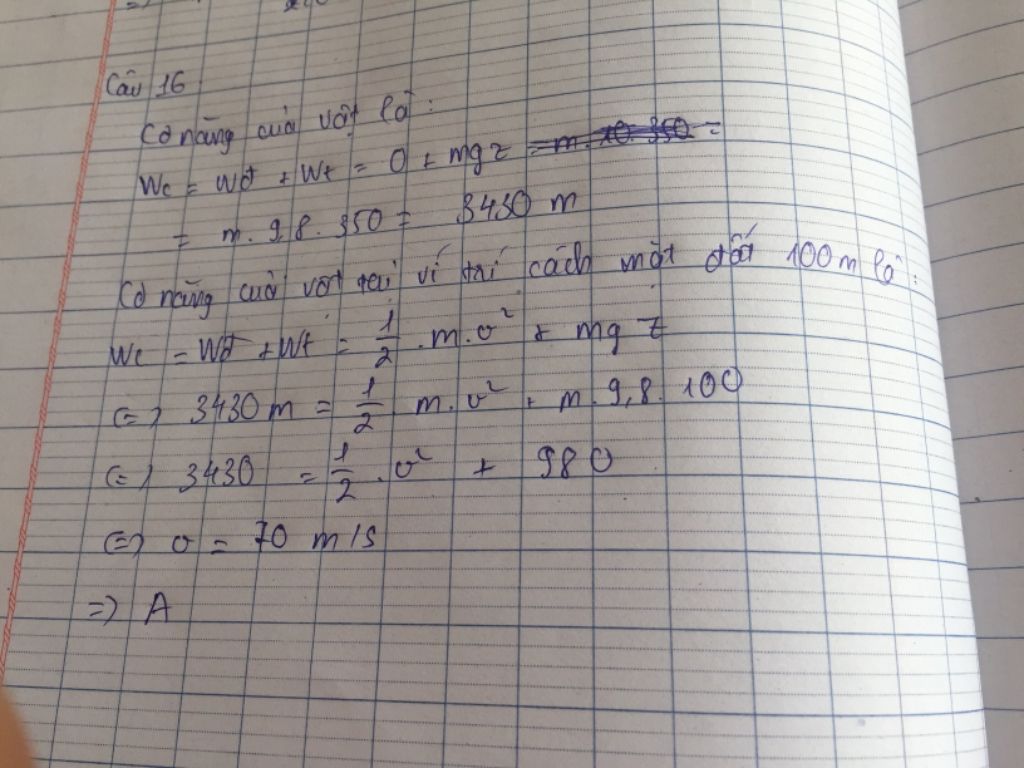 Câu 16
Cơ năng của vật là:
Wc = Wđ + Wt = 0 + mgz = m.10.350 =
= m.9,8.350 = 3430 m
Cơ năng của vật tại ví trí cách mặt đất 100m là:
Wc = Wđ + Wt = 1/2 . m.v² + mgz
(=) 3430m = 1/2 . m.v² + m.9,8.100
(=) 3430 = 1/2 . v² + 980
(=) v = 70 m/s
=) A